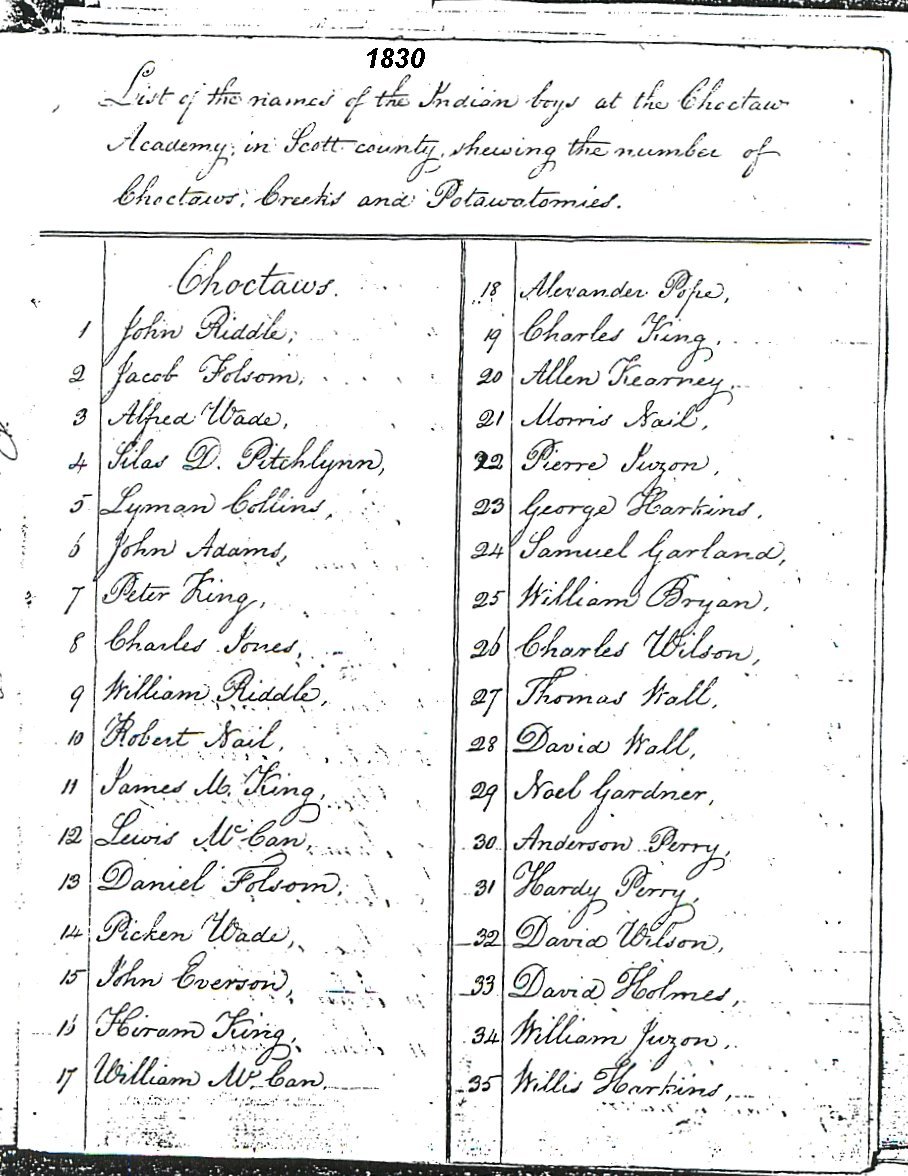 1830
List of the names of the Indian boys at the Choctaw
Academy, in Scott county, shewing the number of
Choctaws, Creeks and Potawatomies.
Choctaws.
1 John Riddle,
2 Jacob Folsom,
3 Alfred Wade,
4 Silas D. Pitchlynn,
5 Lyman Collins,
6 John Adams,
7 Peter King,
8 Charles Jones,
9 William Riddle,
10 Robert Nail,
11 James M. King,
12 Lewis McCan,
13 Daniel Folsom,
14 Picken Wade,
15 John Everson,
16 Hiram King,
17 William McCan,
18 Alexander Pope,
19 Charles King,
20 Allen Kearney,
21 Morris Nail,
22 Pierre Juzon,
23 George Harkins,
24 Samuel Garland,
25 William Bryan,
26 Charles Wilson,
27 Thomas Wall,
28 David Wall,
29 Noel Gardner,
30 Anderson Perry,
31 Hardy Perry,
32 David Wilson,
33 David Holmes,
34 William Juzon,
35 Willis Harkins,